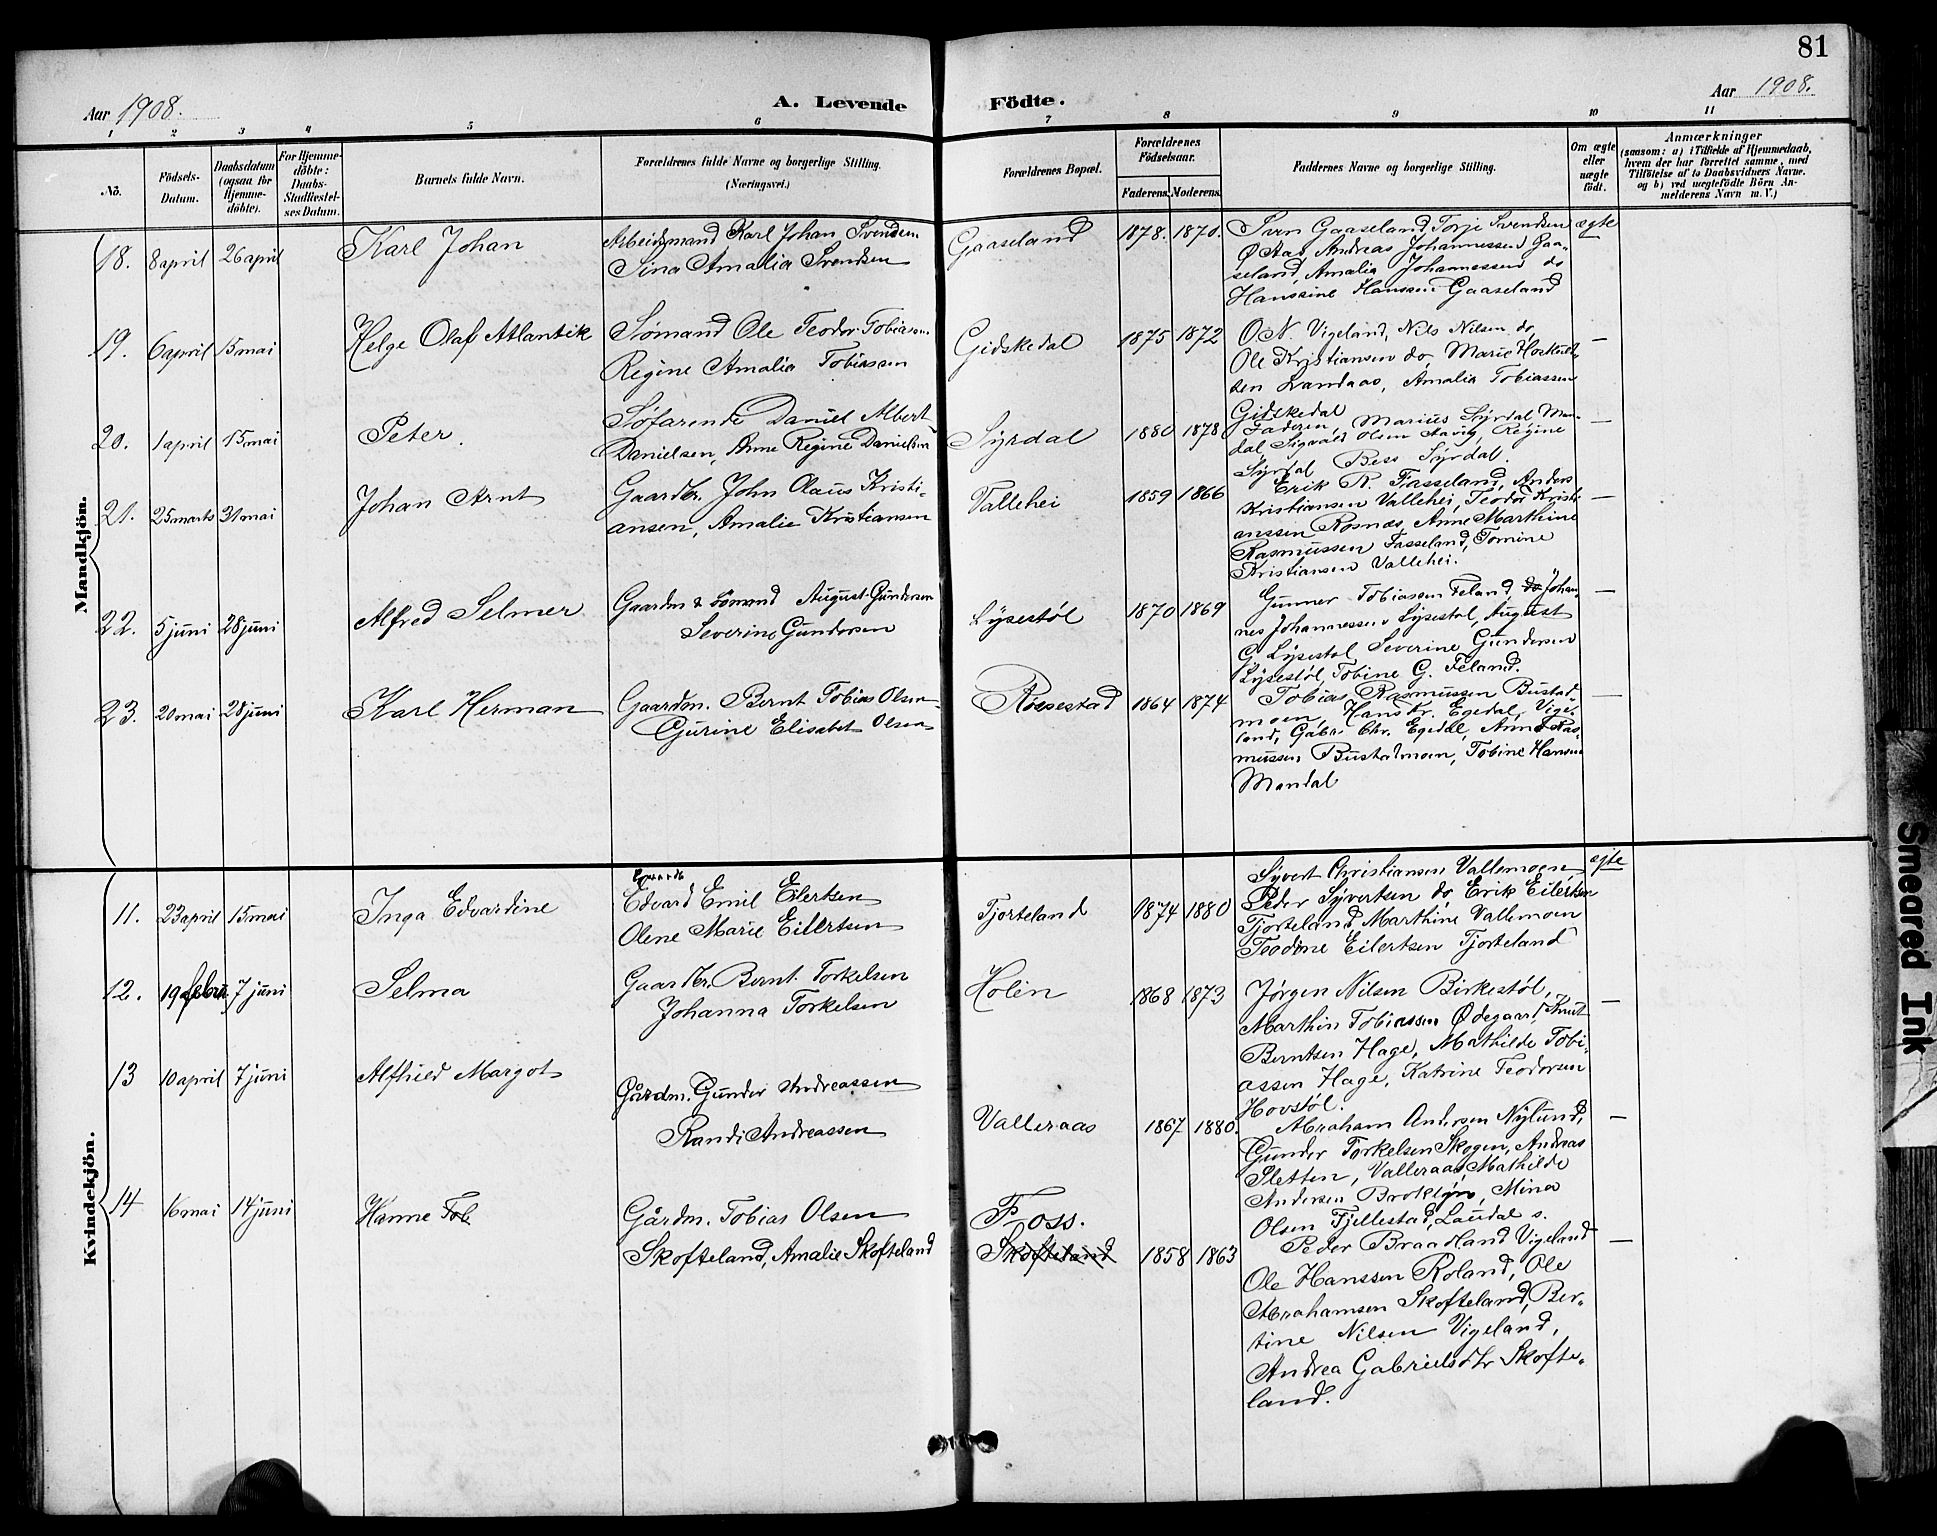 81
Aar 1908.
A. Levende Födte.
Aar 1908.
1 2 3 4 5 6 7 8 9 10 11
No.
Födsels-Datum.
Daabsdatum (ogsaa for Hjemme-döbte).
For Hjemme-döbte: Daabs-Stadfæstel-ses Datum.
Barnets fulde Navn.
Forældrenes fulde Navne og borgerlige Stilling.
(Næringsvei.)
Forældrenes Bopæl.
Forældrenes Födselsaar.
Faderens. Moderens.
Faddernes Navne og borgerlige Stilling.
Om ægte eller uægte födt.
Anmærkninger
(saasom: a) i Tilfælde af Hjemmedaab,
hvem der har forrettet samme, med
Tilföielse af to Daabsvidners Navne.
og b) ved uægtefödte Börn An-
melderens Navn m. V.)
Mandkjön.
18. 8 april 26 april Karl Johan
Arbeidsmand Karl Johan Svendsen
Sina Amalia Svendsen
Gaaseland 1878. 1870.
Sven Gaaseland Torje Svendsen
Ø Aas, Andreas Johannessen Gaa-
seland, Amalia Johannessen do
Hanssine Hanssen Gaaseland
ægte
19. 6 april 15 mai Helge Olaf Atlantik
Sømand Ole Teodor Tobiassen
Regine Amalia Tobiassen
Gidskedal 1875 1872
O. N. Vigeland, Nils Nilsen do,
Ole Kristiansen do, Marie
Landaas, Amalia Tobiassen
Gidskedal
—
20. 1 april 15 mai Peter.
Søfarende Daniel Albert
Danielsen, Anne Regine Danielsen
Syrdal 1880 1878
Faderen, Marius Syrdal Man-
dal, Sigvald Olsen Aavig, Regine
Syrdal Bess Syrdal.
—
21. 25 marts 31 mai Johan Arnt
Gaardbr. John Olaus Kristi-
ansen, Amalie Kristiansen
Vallehei 1859 1866
Erik R. Fasseland, Anders
Kristiansen Vallehei, Teodor Kristi-
anssen Rosnæs, Anne Marthine
Rasmussen Fasseland, Tomine
Kristiansen Vallehei.
—
22. 5 juni 28 juni Alfred Selmer
Gaardm & Sømand August Gundersen
Severine Gundersen
Lysestøl 1870 1869
Gunner Tobiassen Feland, do Johan
nes Johannessen Lysestøl, August
G. Lysestøl Severine Gundersen
Lysestøl, Tobine G. Feland.
—
23. 20 mai 28 juni Karl Herman
Gaardm. Bernt Tobias Olsen
Gurine Elisabet Olsen
Rossestad 1864 1874
Tobias Rasmussen Bustad-
moen, Hans Kr. Egedal, Vige-
land, Gabr. Chr. Egedal, Anne Ras-
mussen Bustadmoen, Tobine Hansen
Mandal
—
Kvindekjön.
11. 23 april 15 mai Inga Edvardine
Edvard Emil Eilertsen
Olene Marie Eilertsen
Tjorteland 1874 1880
Syvert Christiansen Vallemoen
Peder Syvertsen do, Erik Eilertsen
Tjorteland, Marthine Vallemoen
Teodine Eilertsen Tjorteland
ægte
12. 19 febru. 7 juni Selma
Gaardbr. Bernt Torkelsen
Johanna Torkelsen
Holen 1868 1873
Jørgen Nilsen Birkestøl,
Marthin Tobiassen Ødegaard, Knut
Berntsen Hage, Mathilde Tobi-
assen Hage, Katrine Teodorsen
Hovstøl.
—
13 10 april 7 juni Alfhild Margot
Gårdm. Gunder Andreassen
Randi Andreassen
Valleraas 1867 1880.
Abraham Andersen Nylund,
Gunder Torkelsen Skogen, Andreas
Sletten, Valleraas, Mathilde
Andersen Broklyn, Mina
Olsen Fjellestad, Laudal s.
—
14 16 mai 14 juni Hanne Tob
Gårdm. Tobias Olsen
Skofteland, Amalie Skofteland
Foss.
Skofteland 1858 1863
Peder Braadland Vigeland
Ole Hanssen Roland, Ole
Abrahamsen Skofteland, Ber-
tine Nilsen Vigeland,
Andrea Gabrielsdtr Skofte-
land.
—
Smeared Ink